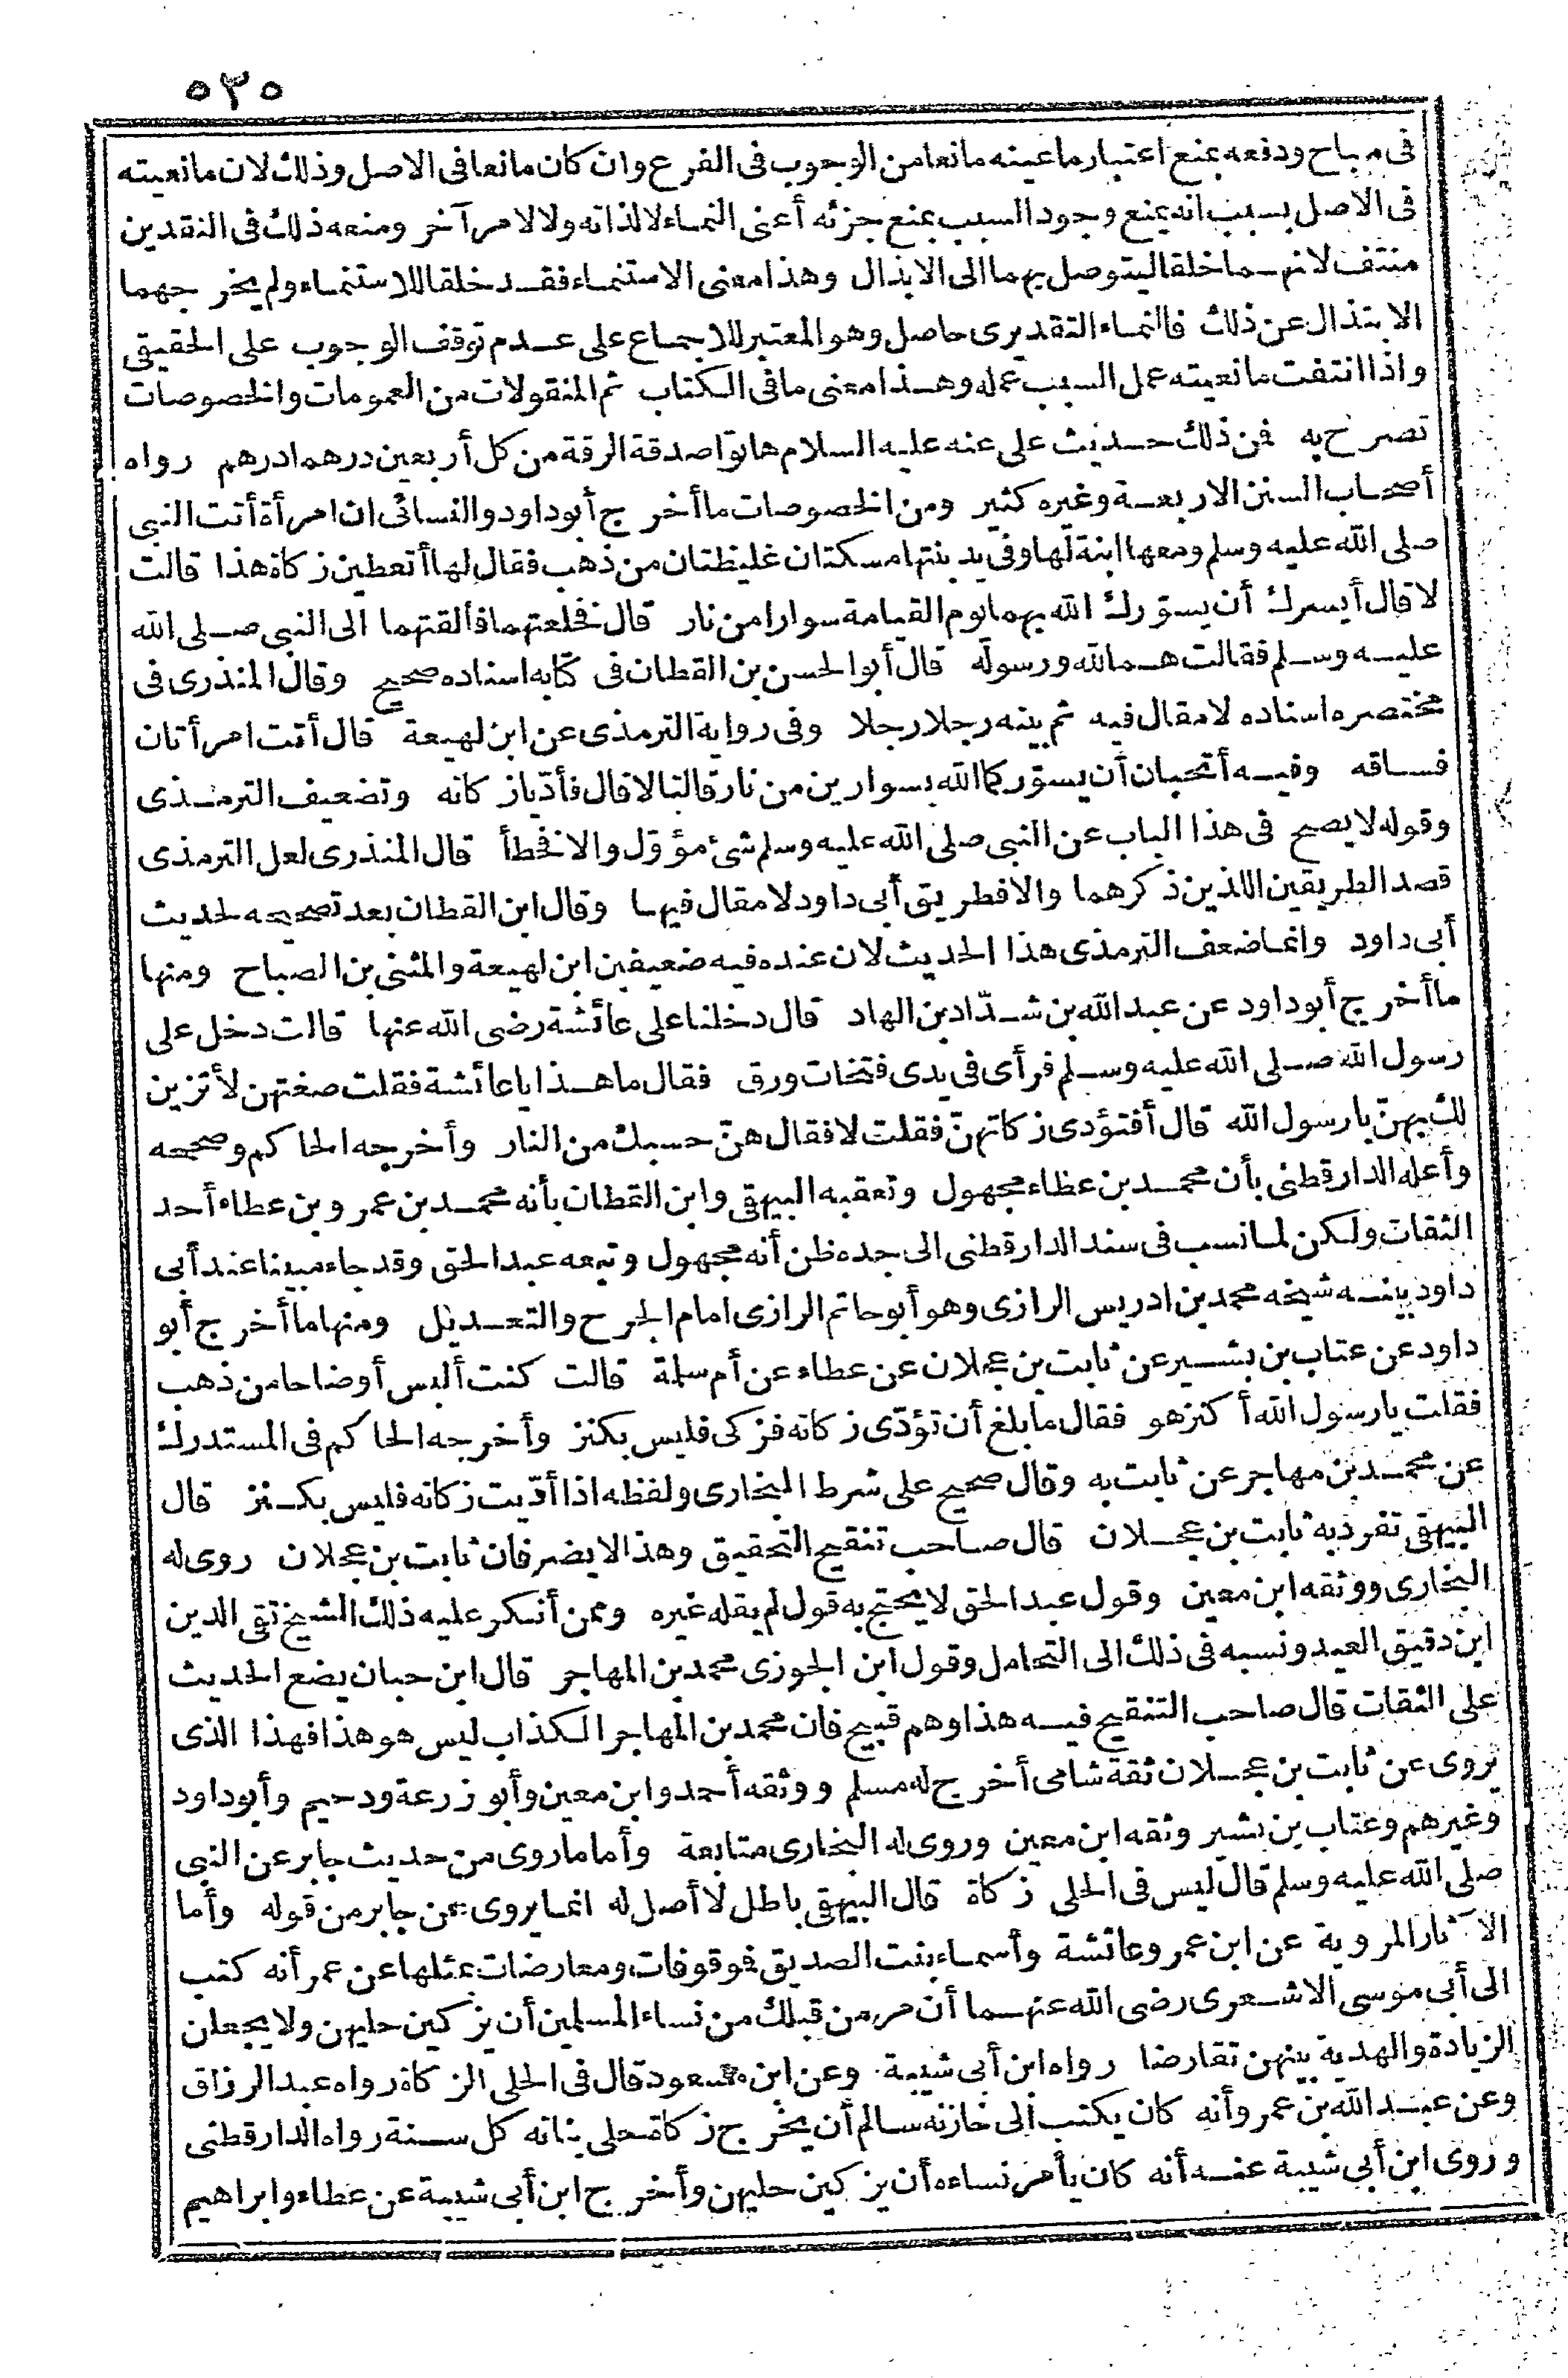 ٥٣٥
فى مباح ودفعه بمنع اعتبار ما عينه مانعا من الوجوب فى الفرع وان كان مانعا فى الاصل وذلك لان مانعيته
فى الاصل بسبب انه يمنع وجود السبب بمنع جزئه أعنى النماء لا لذاته ولا لامر آخر ومنعه ذلك فى النقدين
منتف لانهما خلقا ليتوصل بهما الى الابذال وهذا معنى الاستنماء فقد خلقا للاستنماء ولم يخرجهما
الابتذال عن ذلك فالنماء التقديرى حاصل وهو المعتبر للاجماع على عدم توقف الوجوب على الحقيقى
واذا انتفت مانعيته عمل السبب عمله وهذا معنى ما فى الكتاب ثم المنقولات من العمومات والخصوصات
تصرح به فمن ذلك حديث على عنه عليه السلام هاتوا صدقة الرقة من كل أربعين درهما درهم رواه
أصحاب السنن الاربعة وغيره كثير ومن الخصوصات ما أخرج أبو داود والنسائى ان امرأة أتت النبى
صلى الله عليه وسلم ومعها ابنة لها وفى يد بنتها مسكتان غليظتان من ذهب فقال لها أتعطين زكاة هذا قالت
لا قال أيسرك أن يسورك الله بهما يوم القيامة سوارا من نار قال فخلعتهما فألقتهما الى النبى صلى الله
عليه وسلم فقالت هما لله ورسوله قال أبو الحسن بن القطان فى كتابه اسناده صحيح وقال المنذرى فى
مختصره اسناده لا مقال فيه ثم بينه رجلا رجلا وفى رواية الترمذى عن ابن لهيعة قال أتت امرأتان
فساقه وفيه أتحبان أن يسوركما الله بسوارين من نار قالتا لا قال فأديا زكاته وتضعيف الترمذى
وقوله لا يصح فى هذا الباب عن النبى صلى الله عليه وسلم شئ مؤول والا فخطأ قال المنذرى لعل الترمذى
قصد الطريقين اللذين ذكرهما والا فطريق أبى داود لا مقال فيها وقال ابن القطان بعد تصحيحه لحديث
أبى داود وانما ضعف الترمذى هذا الحديث لان عنده فيه ضعيفين ابن لهيعة والمثنى بن الصباح ومنها
ما أخرج أبو داود عن عبد الله بن شداد بن الهاد قال دخلنا على عائشة رضى الله عنها قالت دخل على
رسول الله صلى الله عليه وسلم فرأى فى يدى فتخات ورق فقال ما هذا يا عائشة فقلت صغتهن لأتزين
لك بهن يا رسول الله قال أفتؤدى زكاتهن فقلت لا فقال هن حسبك من النار وأخرجه الحاكم وصححه
وأعله الدارقطنى بأن محمد بن عطاء مجهول وتعقبه البيهقى وابن القطان بأنه محمد بن عمرو بن عطاء أحد
الثقات ولكن لما نسب فى سند الدارقطنى الى جده ظن أنه مجهول وتبعه عبد الحق وقد جاء مبينا عند أبى
داود بينه شيخه محمد بن ادريس الرازى وهو أبو حاتم الرازى امام الجرح والتعديل ومنها ما أخرج أبو
داود عن عتاب بن بشير عن ثابت بن عجلان عن عطاء عن أم سلمة قالت كنت ألبس أوضاحا من ذهب
فقلت يا رسول الله أكنز هو فقال ما بلغ أن تؤدى زكاته فزكى فليس بكنز وأخرجه الحاكم فى المستدرك
عن محمد بن مهاجر عن ثابت به وقال صحيح على شرط البخارى ولفظه اذا أديت زكاته فليس بكنز قال
البيهقى تفرد به ثابت بن عجلان قال صاحب تنقيح التحقيق وهذا لا يضر فان ثابت بن عجلان روى له
البخارى ووثقه ابن معين وقول عبد الحق لا يحتج به قول لم يقله غيره وممن أنكر عليه ذلك الشيخ تقى الدين
ابن دقيق العيد ونسبه فى ذلك الى التحامل وقول ابن الجوزى محمد بن المهاجر قال ابن حبان يضع الحديث
على الثقات قال صاحب التنقيح فيه هذا وهم قبيح فان محمد بن المهاجر الكذاب ليس هو هذا فهذا الذى
يروى عن ثابت بن عجلان ثقة شامى أخرج له مسلم ووثقه أحمد وابن معين وأبو زرعة ودحيم وأبو داود
وغيرهم وعتاب بن بشير وثقه ابن معين وروى له البخارى متابعة وأما ما روى من حديث جابر عن النبى
صلى الله عليه وسلم قال ليس فى الحلى زكاة قال البيهقى باطل لا أصل له انما يروى عن جابر من قوله وأما
الآثار المروية عن ابن عمر وعائشة وأسماء بنت الصديق فموقوفات ومعارضات بمثلها عن عمر أنه كتب
الى أبى موسى الاشعرى رضى الله عنهما أن مر من قبلك من نساء المسلمين أن يزكين حليهن ولا يجعلن
الزيادة والهدية بينهن تقارضا رواه ابن أبى شيبة وعن ابن مسعود قال فى الحلى الزكاة رواه عبد الرزاق
وعن عبد الله بن عمرو أنه كان يكتب الى خازنه سالم أن يخرج زكاة حلى بناته كل سنة رواه الدارقطنى
وروى ابن أبى شيبة عنه أنه كان يأمر نساءه أن يزكين حليهن وأخرج ابن أبى شيبة عن عطاء وابراهيم